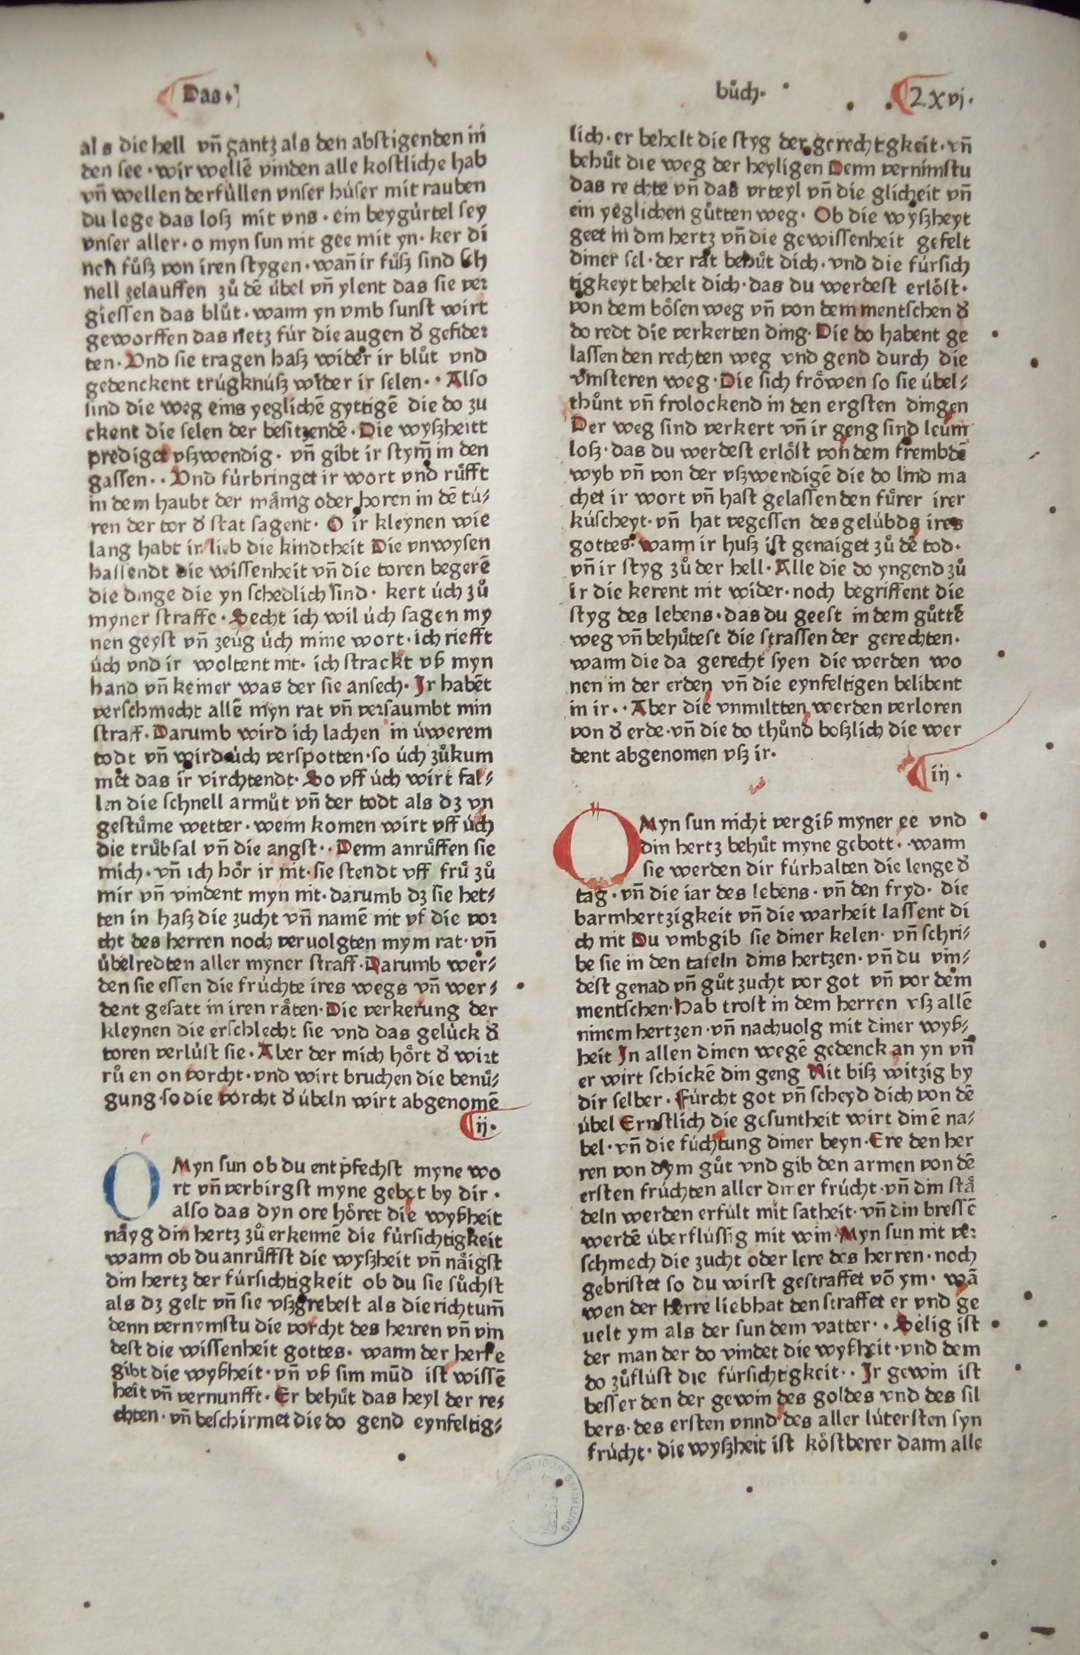 Das
bůch·
lxvj.
als die hell vn̄ gantz als den abstigenden in
den see·wir wellē vinden alle kostliche hab
vn̄ wellen derfüllen vnser húser mit rauben
du lege das loß mit vns·ein beygúrtel sey
vnser aller·o myn sun nit gee mit yn·ker di
nen fůß von iren stygen·wan̄ ir fůß sind sch
nell zelauffen zů dē übel vn̄ ylent das sie ver
giessen das blůt·wann yn vmb sunst wirt
geworffen das netz für die augen ꝺ gefider
ten·Vnd sie tragen haß wider ir blůt vnd
gedenckent trúgknúß wider ir selen··Also
sind die weg eins yeglichē gyttigē die do zu
ckent die selen der besitzendē·Die wyßheitt
prediget vßwendig·vn̄ gibt ir stym̄ in den
gassen··Vnd fúrbringet ir wort vnd růfft
in dem haubt der mänig oder horen in dē tú⸗
ren der tor ꝺ stat sagent·O ir kleynen wie
lang habt ir lieb die kindtheit Die vnwysen
hassendt die wissenheit vn̄ die toren begerē
die dinge die yn schedlich sind·kert úch zů
myner straffe·Secht ich wil úch sagen my
nen geyst vn̄ zeúg úch mine wort·ich riefft
úch vnd ir woltent nit·ich strackt vß myn
hand vn̄ keiner was der sie ansech·Ir habēt
verschmecht allē myn rat vn̄ versaumbt min
straff·Darumb wird ich lachen in úwerem
todt vn̄ wird úch verspotten·so úch zůkum
met das ir virchtendt·So vff úch wirt fal⸗
len die schnell armůt vn̄ der todt als dz vn
gestúme wetter·wenn komen wirt vff úch
die trůbsal vn̄ die angst··Denn anrůffen sie
mich·vn̄ ich hör ir nit·sie stendt vff frů zů
mir vn̄ vindent myn nit·darumb dz sie het⸗
ten in haß die zucht vn̄ namē nit vf die vor
cht des herren noch veruolgten mym rat·vn̄
übelredten aller myner straff·Darumb wer⸗
den sie essen die frúchte ires wegs vn̄ wer⸗
dent gesatt in iren räten·Die verkerung der
kleynen die erschlecht sie vnd das gelúck ꝺ
toren verlúst sie·Aber der mich hört ꝺ wirt
růen on vorcht·vnd wirt bruchen die benů⸗
gung·so die vorcht ꝺ übeln wirt abgenomē
ij·
O Myn sun ob du entpfechst myne wo
rt vn̄ verbirgst myne gebot by dir·
also das dyn ore höret die wyßheit
näyg din hertz zů erkennē die fúrsichtigkeit
wann ob du anrůffst die wyßheit vn̄ näigst
din hertz der fúrsichtigkeit ob du sie sůchst
als dz gelt vn̄ sie vßgrebest als die richtum̄
denn vernymstu die vorcht des herren vn̄ vin
dest die wissenheit gottes·wann der herre
gibt die wyßheit·vn̄ vß sim mūd ist wissē
heit vn̄ vernunfft·Er behůt das heyl der re⸗
chten·vn̄ beschirmet die do gend eynfeltig⸗
lich·er behelt die styg der gerechtgkeit·vn̄
behůt die weg der heyligen Denn vernimstu
das rechte vn̄ das vrteyl vn̄ die glicheit vn̄
ein yeglichen gůtten weg·Ob die wyßheyt
geet in din hertz vn̄ die gewissenheit gefelt
diner sel·der rat behůt dich·vnd die fúrsich
tigkeyt behelt dich·das du werdest erlöst·
von dem bösen weg vn̄ von dem mentschen ꝺ
do redt die verkerten ding·Die do habent ge
lassen den rechten weg vnd gend durch die
vinsteren weg·Die sich fröwen so sie übel⸗
thůnt vn̄ frolockend in den ergsten dingen
Der weg sind verkert vn̄ ir geng sind leúm
loß·das du werdest erlöst von dem frembdē
wyb vn̄ von der vßwendigē die do lind ma
chet ir wort vn̄ hast gelassen den fürer irer
kúscheyt·vn̄ hat vegessen des gelúbds ires
gottes·wann ir huß ist genaiget zů dē tod·
vn̄ ir styg zů der hell·Alle die do yngend zů
ir die kerent nit wider·noch begriffent die
styg des lebens·das du geest in dem gůttē
weg vn̄ behůtest die strassen der gerechten·
wann die da gerecht syen die werden wo
nen in der erden vn̄ die eynfeltigen belibent
in ir··Aber die vnmiltten werden verloren
von ꝺ erde·vn̄ die do thůnd boßlich die wer
dent abgenomen vß ir·
iij·
O Myn sun nicht vergiß myner ee vnd
din hertz behůt myne gebott·wann
sie werden dir fúrhalten die lenge ꝺ
tag·vn̄ die iar des lebens·vn̄ den fryd·die
barmhertzigkeit vn̄ die warheit lassent di
ch nit Du vmbgib sie diner kelen·vn̄ schri⸗
be sie in den tafeln dins hertzen·vn̄ du vin⸗
dest genad vn̄ gůt zucht vor got vn̄ vor dem
mentschen·Hab trost in dem herren vß allē
ninem hertzen·vn̄ nachuolg mit diner wyß⸗
heit In allen dinen wegē gedenck an yn vn̄
er wirt schickē din geng Nit biß witzig by
dir selber·Fúrcht got vn̄ scheyd dich von dē
übel Ernstlich die gesuntheit wirt dinē na⸗
bel·vn̄ die fúchtung diner beyn·Ere den her
ren von dym gůt vnd gib den armen von dē
ersten frúchten aller diner frúcht·vn̄ din stä
deln werden erfúlt mit satheit·vn̄ din bressē
werdē überflússig mit win·Myn sun nit ver
schmech die zucht oder lere des herren·noch
gebristet so du wirst gestraffet vō ym·wā
wen der herre liebhat den straffet er vnd ge
uelt ym als der sun dem vatter··Selig ist
der man der do vindet die wyßheit·vnd dem
do zůflúst die fúrsichtigkeit··Ir gewin ist
besser den der gewin des goldes vnd des sil
bers·des ersten vnnd des aller lútersten syn
frúcht·die wyßheit ist köstberer dann alle